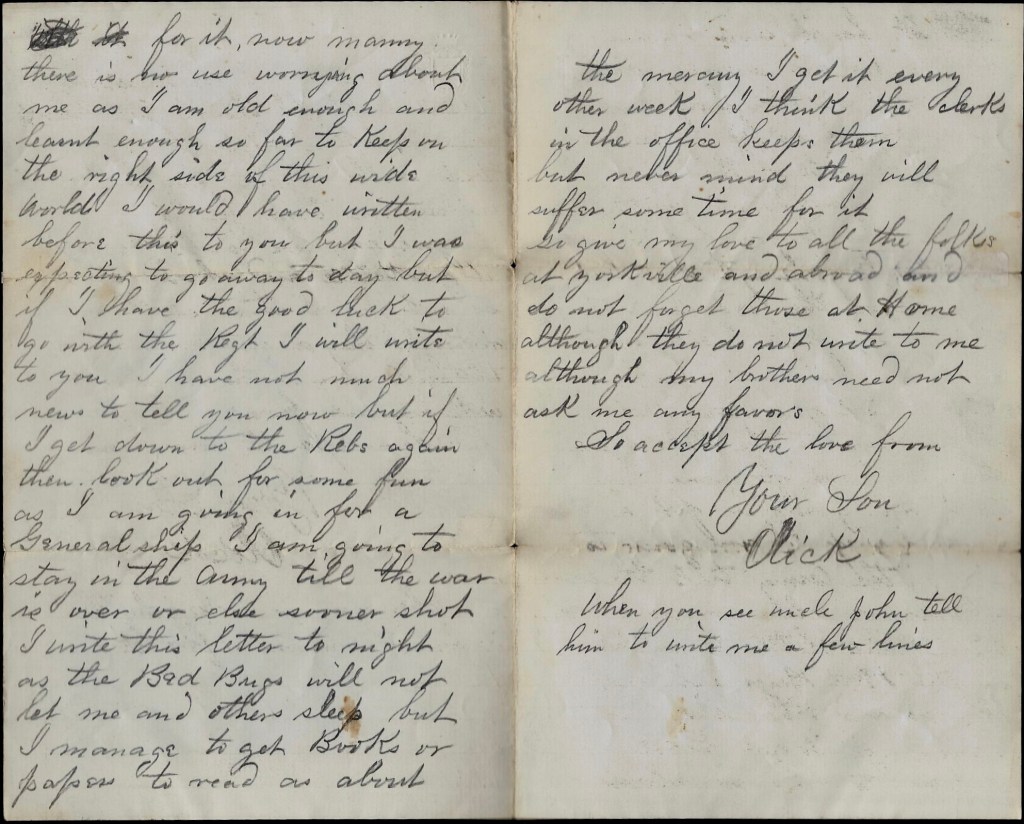 for it, now mammy
there is no use worrying about
me as I am old enough and
learnt enough so far to Keep on
the right side of this wide
World I would have written
before this to you but I was
expecting to go away to day but
if I have the good luck to
go with the Regt I will write
to you I have not much
news to tell you now but if
I get down to the Rebs again
then look out for some fun
as I am going in for a
Generalship I am going to
stay in the army till the war
is over or else sooner shot
I write this letter to night
as the Bed Bugs will not
let me and others sleep but
I manage to get Books or
papers to read as about
the mercury I get it every
other week I think the clerks
in the office keeps them
but never mind they will
suffer some time for it
so give my love to all the folks
at yorkville and abroad and
do not forget those at Home
although they do not write to me
although my brothers need not
ask me any favors
So accept the love from
Your Son
Dick
When you see uncle john tell
him to write me a few lines